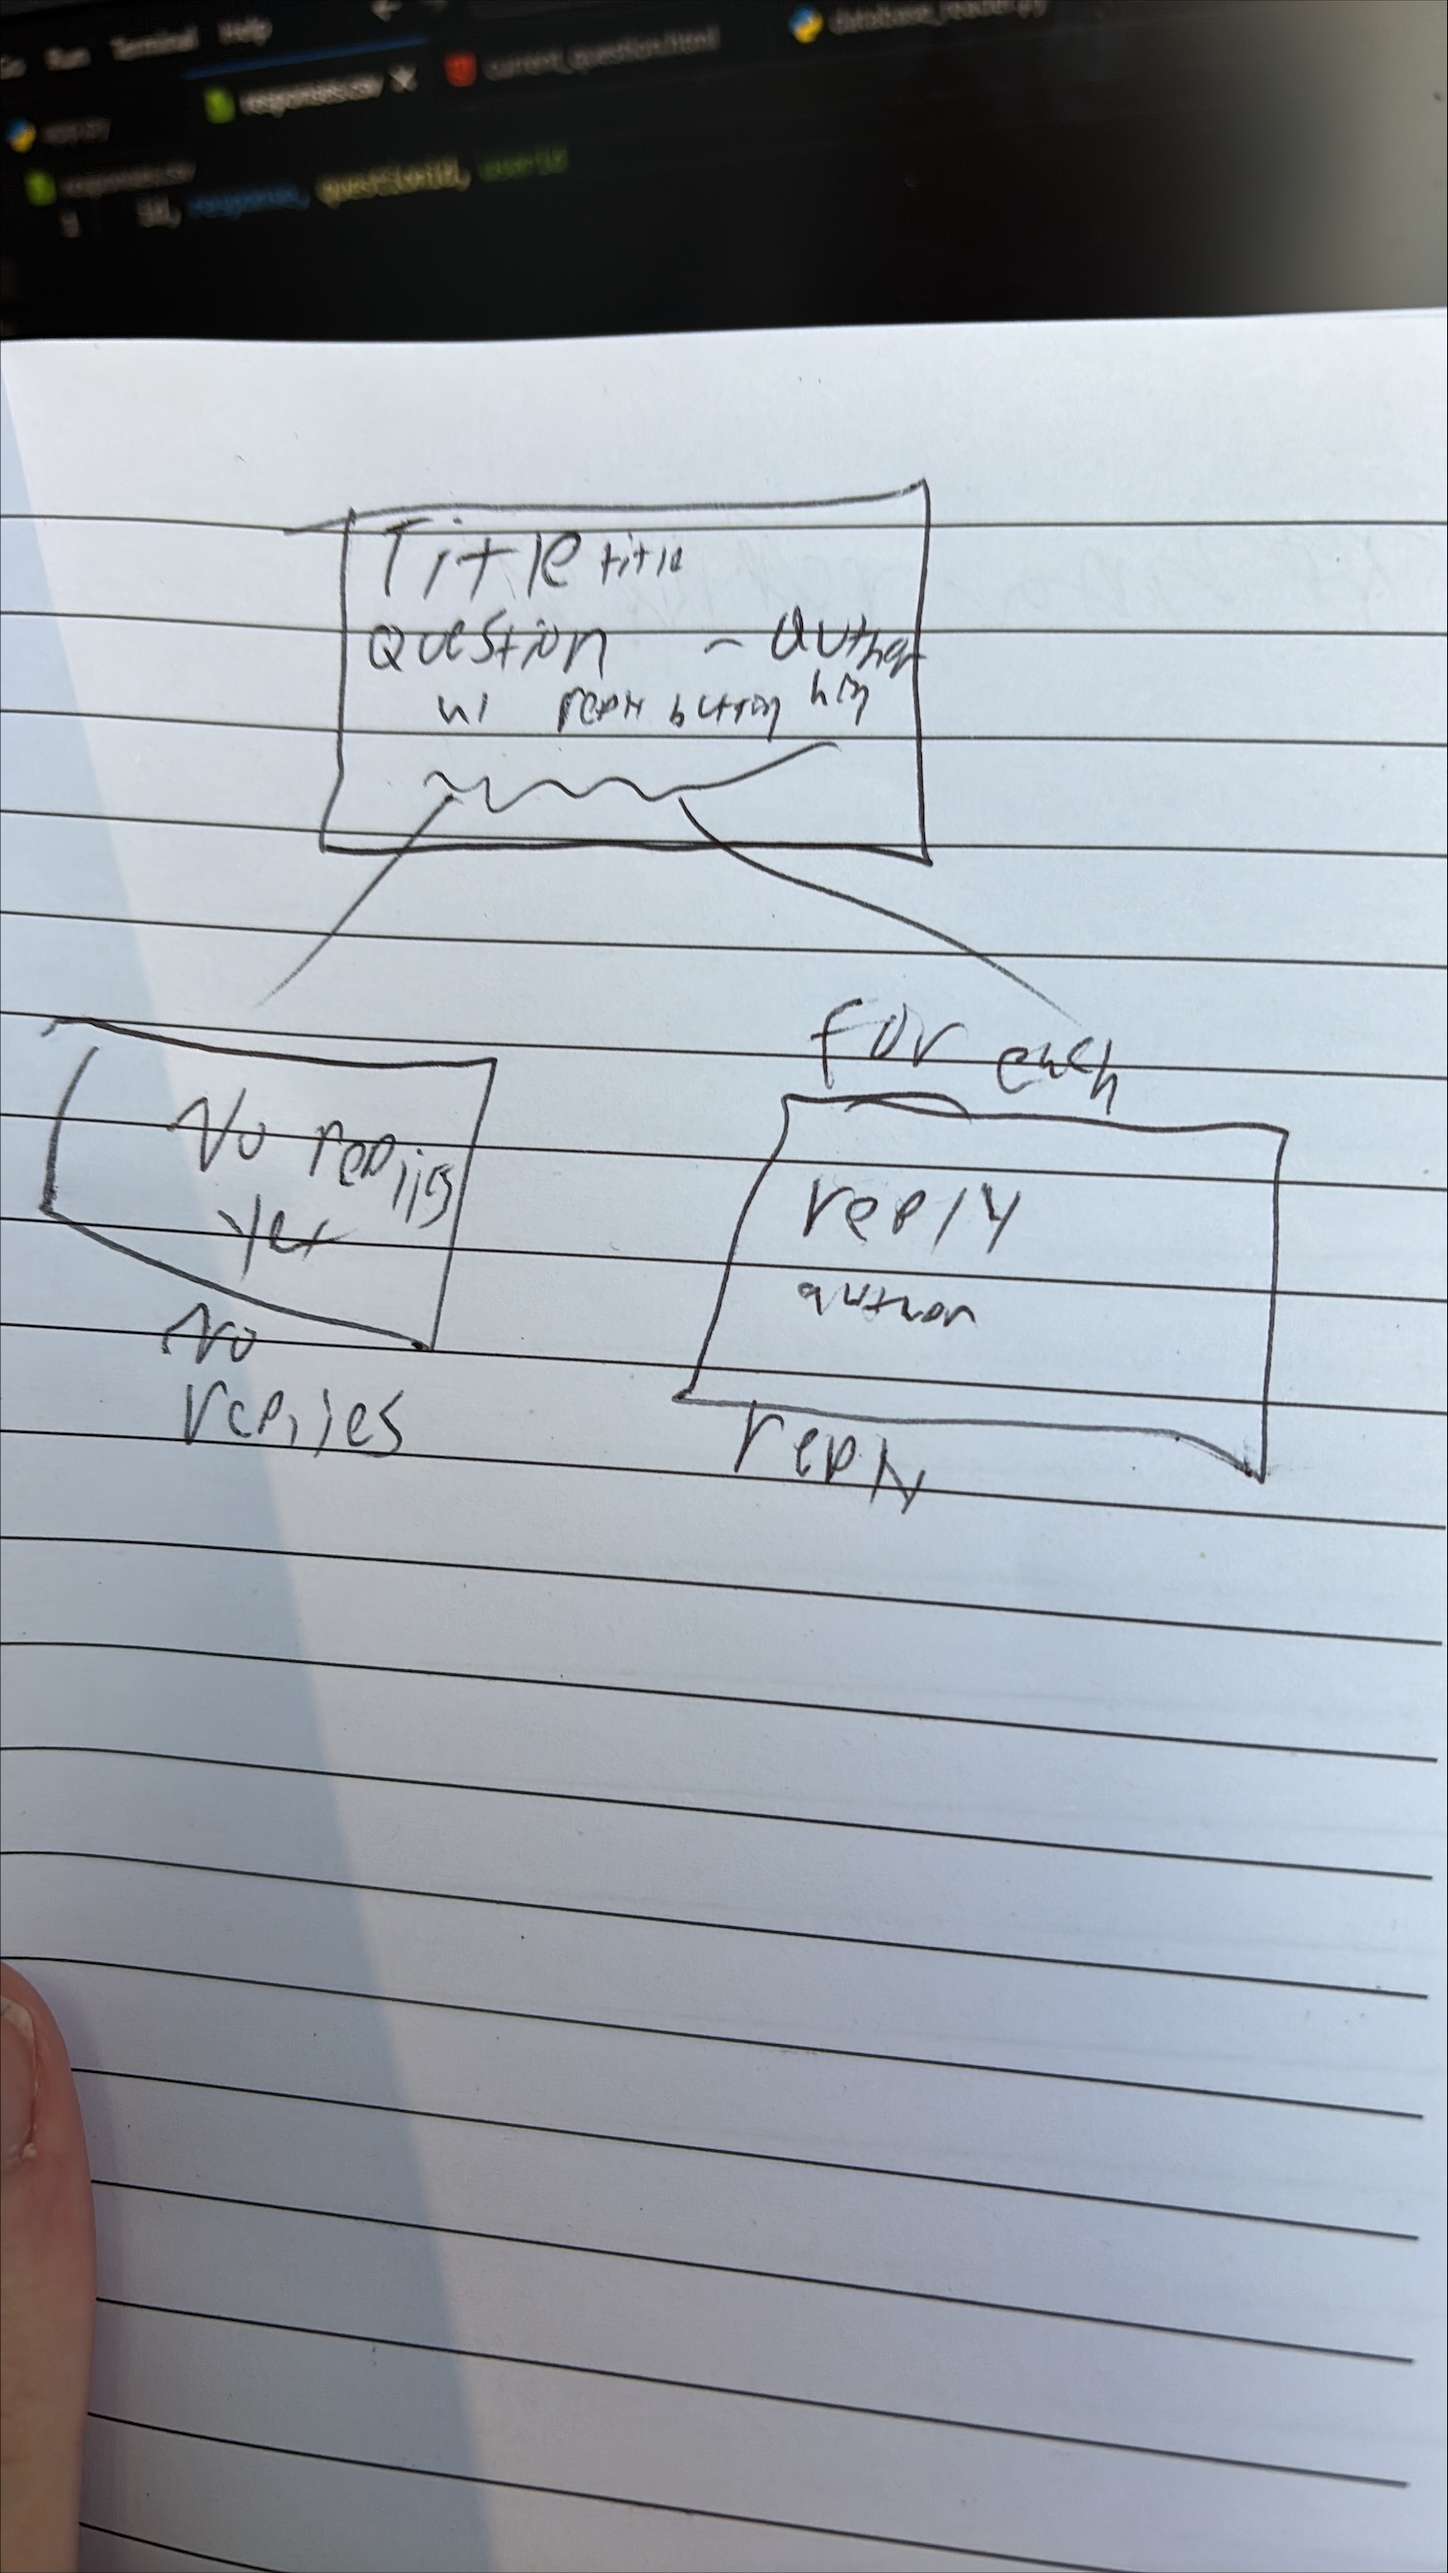 Go Run Terminal Help
app.py responses.csv current_question.html database_reader.py
responses.csv
1 id, response, questionid, userid
Title title
Question - author
w/ reply button
No replies
yet
No
replies
For each
reply
author
reply